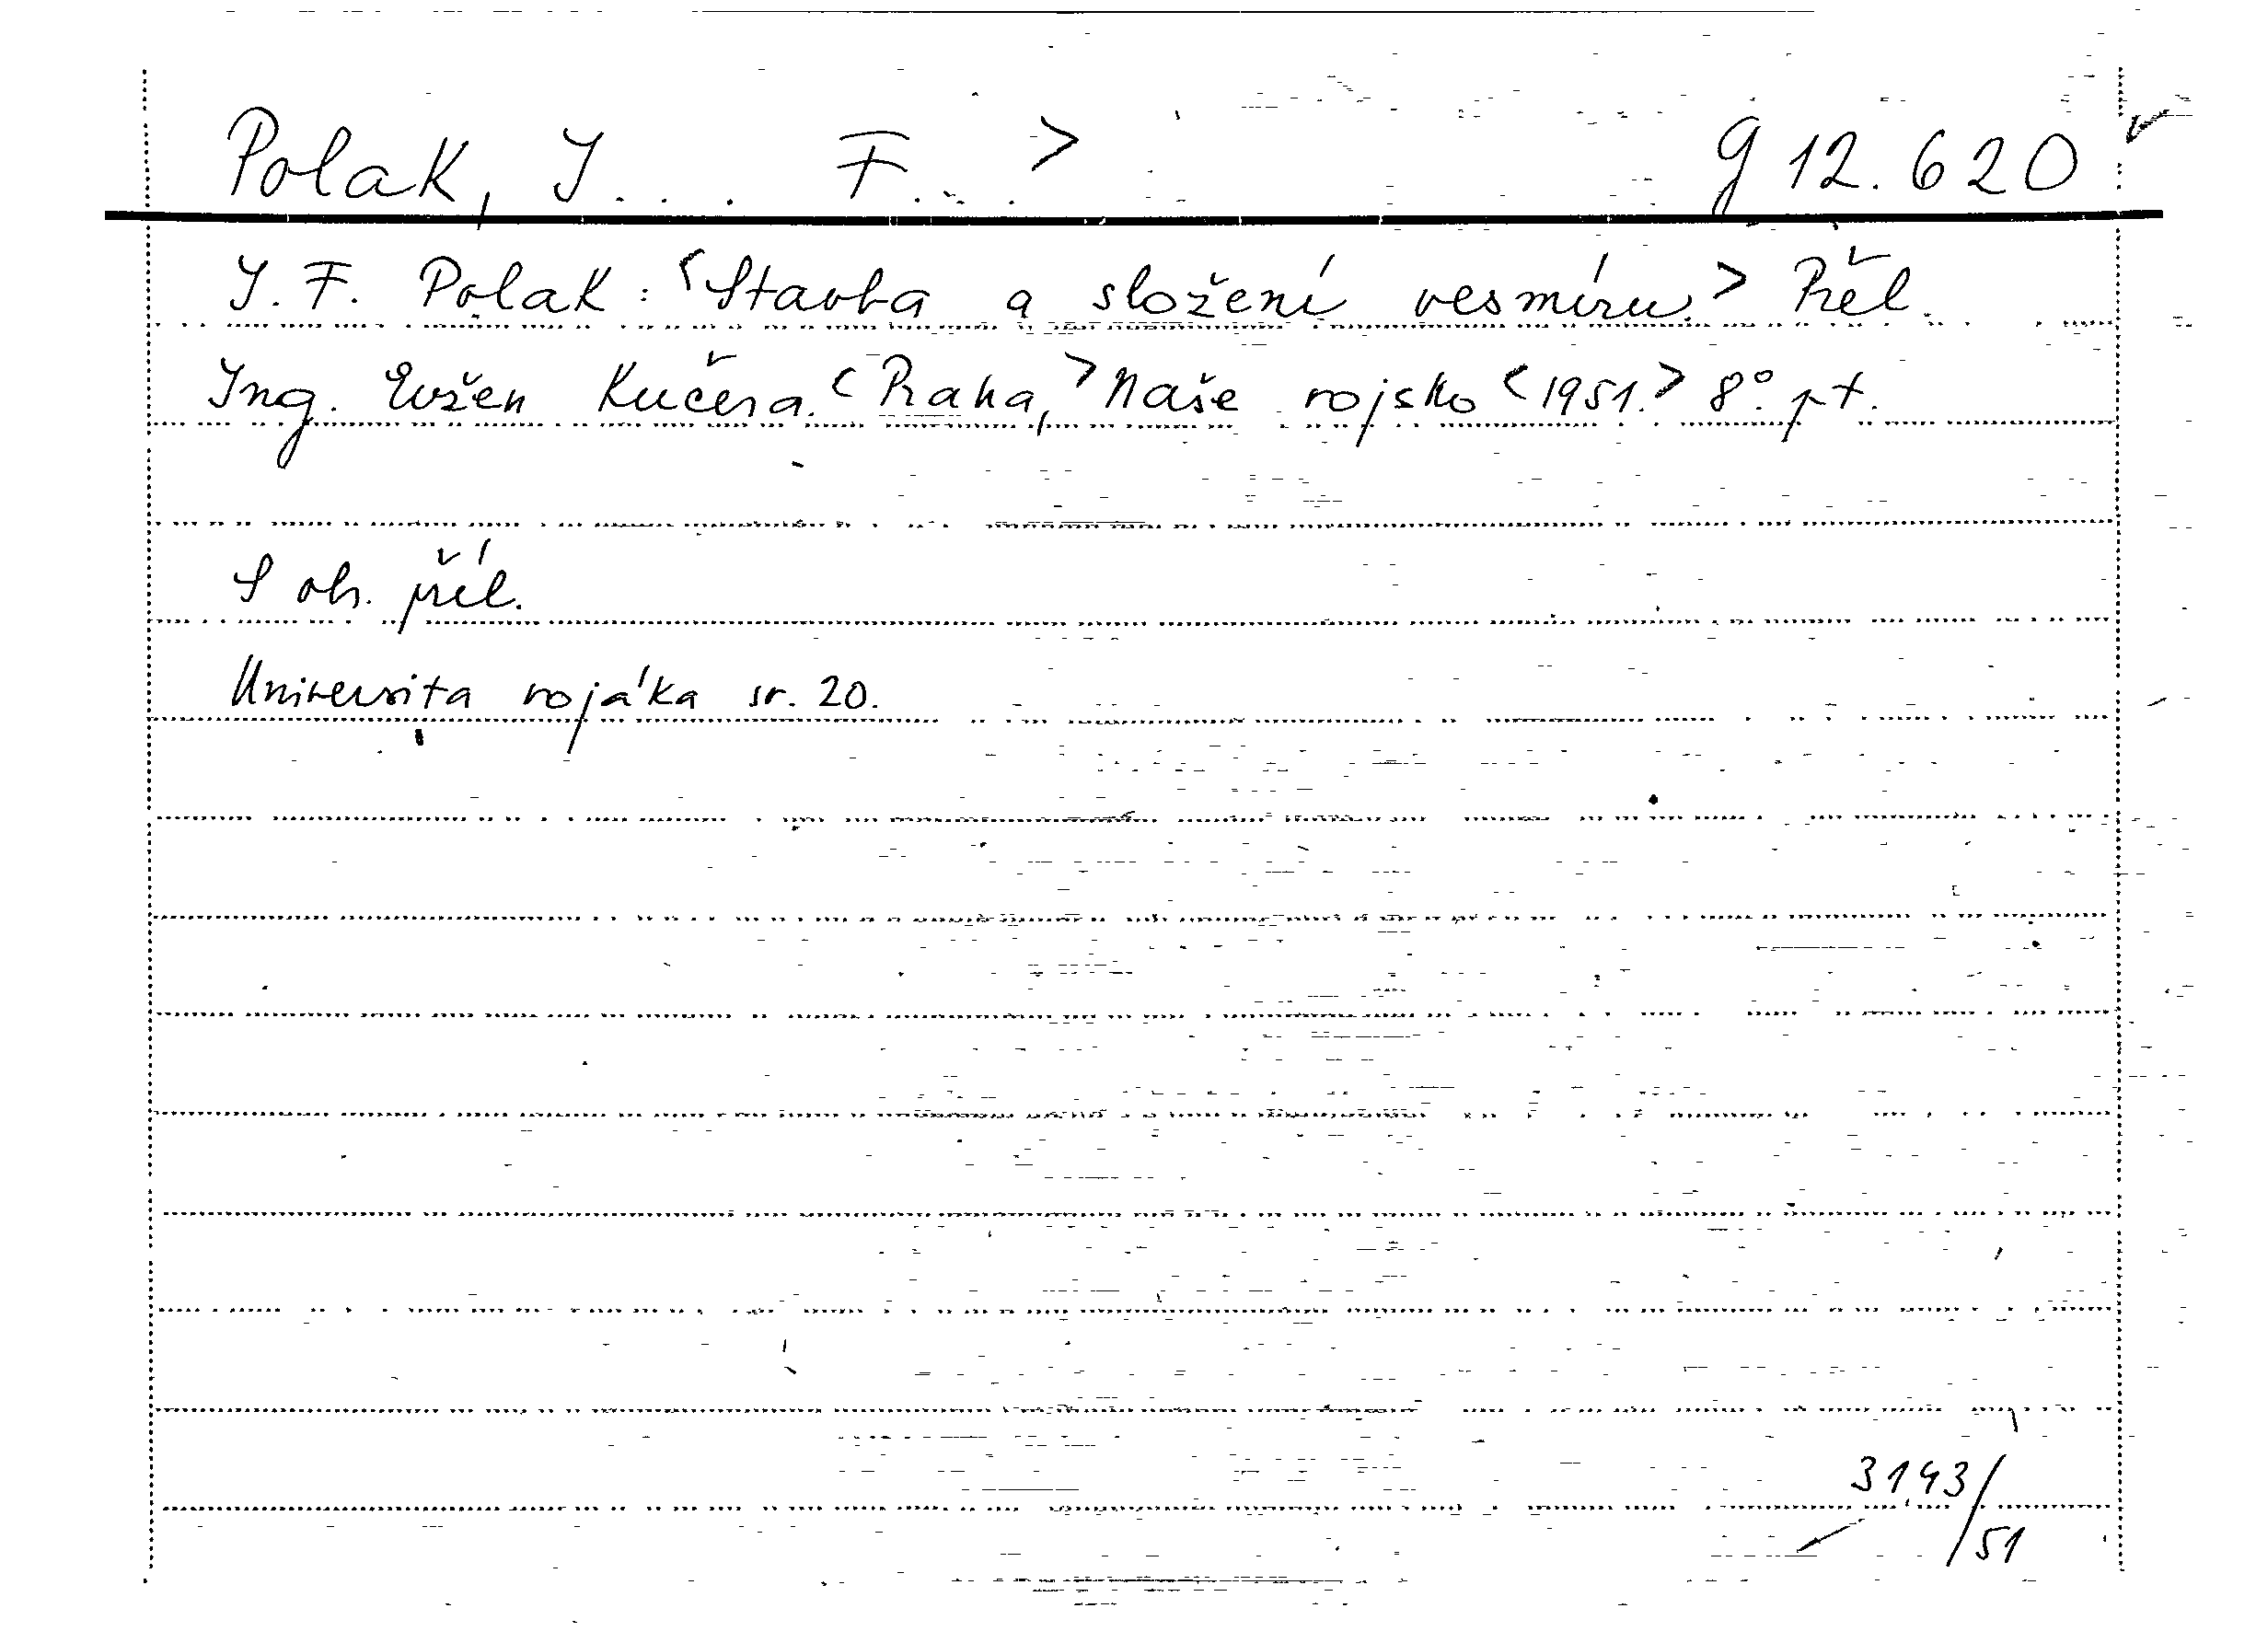 Polak, I... F... > g 12.620
I. F. Polak: <Stavba a složení vesmíru.> Přel.
Ing. Evžen Kučera. <Praha,> Naše vojsko <1951.> 8°. pt.
S ob. příl.
Universita vojáka sv. 20.
3143/51